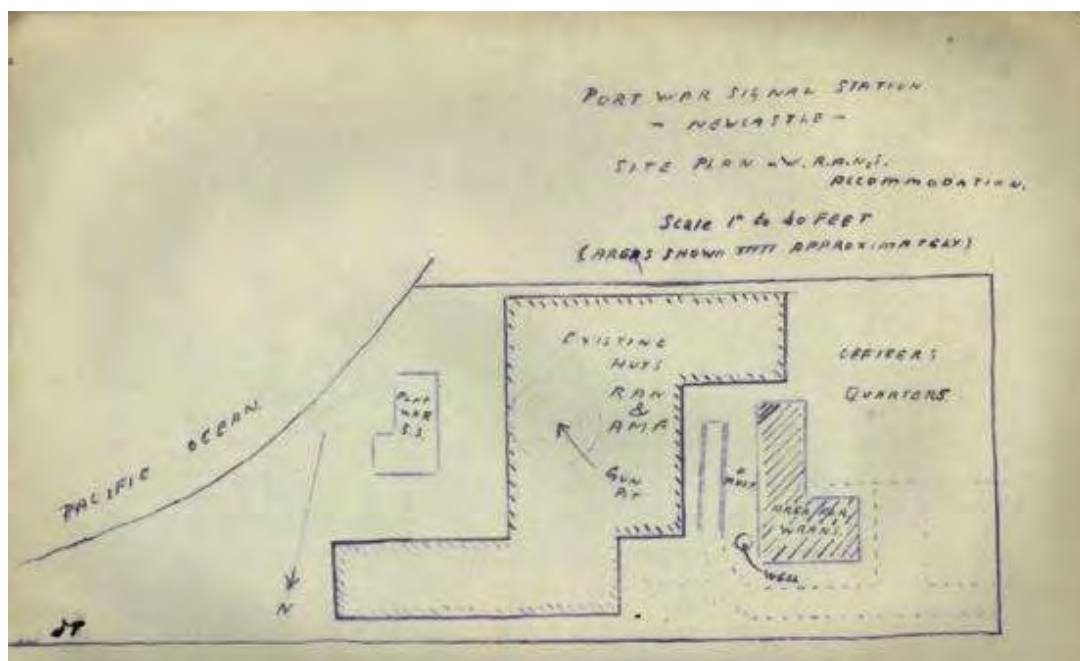 PORT WAR SIGNAL STATION
- NEWCASTLE -
SITE PLAN W.R.A.N.S.
ACCOMMODATION.
Scale 1" to 40 FEET
(AREAS SHOWN APPROXIMATELY)
PACIFIC OCEAN
N
PORT
WAR
S.S
EXISTING
HUTS
RAN
&
AMF
GUN
PIT
OFFICERS
QUARTERS
AREA FOR
WRANS
WELL